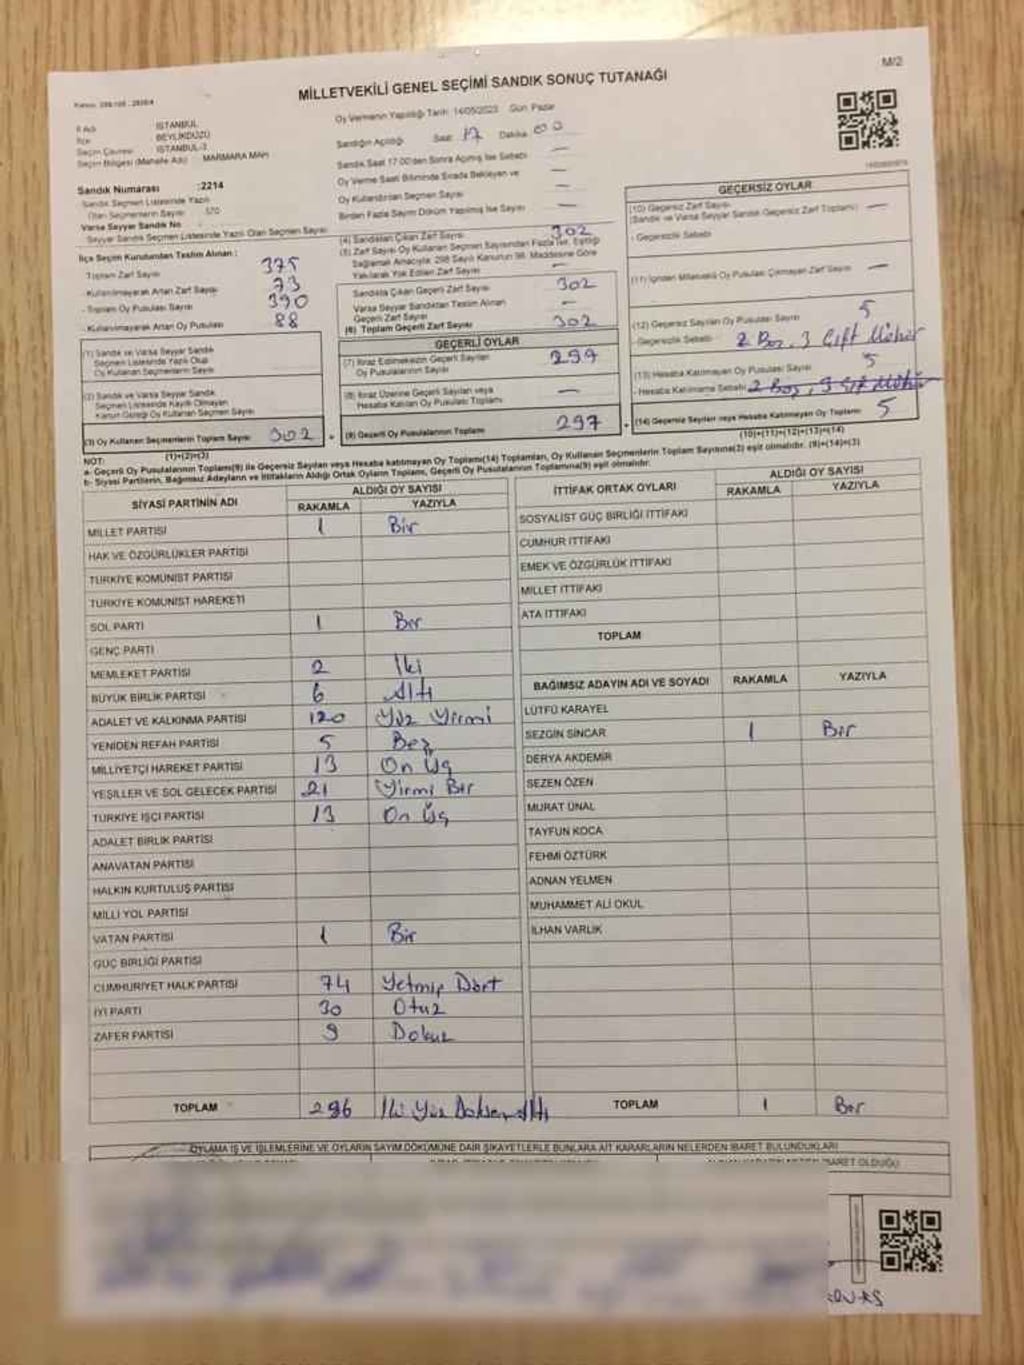 M/2
MİLLETVEKİLİ GENEL SEÇİMİ SANDIK SONUÇ TUTANAĞI
Oy Vermenin Yapıldığı Tarih: 14/05/2023 Gün: Pazar
İl Adı İSTANBUL
İlçe BEYLİKDÜZÜ
Seçim Çevresi İSTANBUL-3
Seçim Bölgesi (Mahalle Adı) MARMARA MAH.
Sandık Numarası :2214
Sandık Seçmen Listesinde Yazılı
Olan Seçmenlerin Sayısı 370
Varsa Seyyar Sandık No
Seyyar Sandık Seçmen Listesinde Yazılı Olan Seçmen Sayısı
Sandığın Açıldığı Saat 17 Dakika 00
Sandık Saat 17:00'den Sonra Açılmış İse Sebebi —
Oy Verme Saati Bitiminde Sırada Bekleyen ve —
Oy Kullandırılan Seçmen Sayısı —
Birden Fazla Sayım Döküm Yapılmış İse Sayısı —
İlçe Seçim Kurulundan Teslim Alınan :
Toplam Zarf Sayısı 375
- Kullanılmayarak Artan Zarf Sayısı 73
- Toplam Oy Pusulası Sayısı 390
- Kullanılmayarak Artan Oy Pusulası 88
(1) Sandık ve Varsa Seyyar Sandık
Seçmen Listesinde Yazılı Olup
Oy Kullanan Seçmenlerin Sayısı
(2) Sandık ve Varsa Seyyar Sandık
Seçmen Listesinde Kayıtlı Olmayan
Kanun Gereği Oy Kullanan Seçmen Sayısı
(3) Oy Kullanan Seçmenlerin Toplam Sayısı 302
(1)+(2)=(3)
(4) Sandıktan Çıkan Zarf Sayısı 302
(5) Zarf Sayısı Oy Kullanan Seçmen Sayısından Fazla İse, Eşitliği
Sağlamak Amacıyla; 298 Sayılı Kanunun 98. Maddesine Göre
Yakılarak Yok Edilen Zarf Sayısı —
Sandıkta Çıkan Geçerli Zarf Sayısı 302
Varsa Seyyar Sandıktan Teslim Alınan
Geçerli Zarf Sayısı —
(6) Toplam Geçerli Zarf Sayısı 302
GEÇERLİ OYLAR
(7) İtiraz Edilmeksizin Geçerli Sayılan
Oy Pusulalarının Sayısı 297
(8) İtiraz Üzerine Geçerli Sayılan veya
Hesaba Katılan Oy Pusulası Toplamı —
(9) Geçerli Oy Pusulalarının Toplamı 297
GEÇERSİZ OYLAR
(10) Geçersiz Zarf Sayısı
(Sandık ve Varsa Seyyar Sandık Geçersiz Zarf Toplamı) —
- Geçersizlik Sebebi
(11) İçinden Milletvekili Oy Pusulası Çıkmayan Zarf Sayısı —
(12) Geçersiz Sayılan Oy Pusulası Sayısı 5
- Geçersizlik Sebebi 2 Boş, 3 Çift Mühür
(13) Hesaba Katılmayan Oy Pusulası Sayısı 5
- Hesaba Katılmama Sebebi 2 Boş, 3 Çift Mühür
(14) Geçersiz Sayılan veya Hesaba Katılmayan Oy Toplamı 5
(10)+(11)+(12)+(13)=(14)
NOT:
a- Geçerli Oy Pusulalarının Toplamı(9) ile Geçersiz Sayılan veya Hesaba katılmayan Oy Toplamı(14) Toplamları, Oy Kullanan Seçmenlerin Toplam Sayısına(3) eşit olmalıdır. (9)+(14)=(3)
b- Siyasi Partilerin, Bağımsız Adayların ve İttifakların Aldığı Ortak Oyların Toplamı, Geçerli Oy Pusulalarının Toplamına(9) eşit olmalıdır.
SİYASİ PARTİNİN ADI ALDIĞI OY SAYISI
RAKAMLA YAZIYLA
MİLLET PARTİSİ 1 Bir
HAK VE ÖZGÜRLÜKLER PARTİSİ
TÜRKİYE KOMÜNİST PARTİSİ
TÜRKİYE KOMÜNİST HAREKETİ
SOL PARTİ 1 Bir
GENÇ PARTİ
MEMLEKET PARTİSİ 2 İki
BÜYÜK BİRLİK PARTİSİ 6 Altı
ADALET VE KALKINMA PARTİSİ 120 Yüz Yirmi
YENİDEN REFAH PARTİSİ 5 Beş
MİLLİYETÇİ HAREKET PARTİSİ 13 On Üç
YEŞİLLER VE SOL GELECEK PARTİSİ 21 Yirmi Bir
TÜRKİYE İŞÇİ PARTİSİ 13 On Üç
ADALET BİRLİK PARTİSİ
ANAVATAN PARTİSİ
HALKIN KURTULUŞ PARTİSİ
MİLLİ YOL PARTİSİ
VATAN PARTİSİ 1 Bir
GÜÇ BİRLİĞİ PARTİSİ
CUMHURİYET HALK PARTİSİ 74 Yetmiş Dört
İYİ PARTİ 30 Otuz
ZAFER PARTİSİ 9 Dokuz
TOPLAM 296 İki Yüz Doksan Altı
İTTİFAK ORTAK OYLARI ALDIĞI OY SAYISI
RAKAMLA YAZIYLA
SOSYALİST GÜÇ BİRLİĞİ İTTİFAKI
CUMHUR İTTİFAKI
EMEK VE ÖZGÜRLÜK İTTİFAKI
MİLLET İTTİFAKI
ATA İTTİFAKI
TOPLAM
BAĞIMSIZ ADAYIN ADI VE SOYADI RAKAMLA YAZIYLA
LÜTFÜ KARAYEL
SEZGİN SİNCAR 1 Bir
DERYA AKDEMİR
SEZEN ÖZEN
MURAT ÜNAL
TAYFUN KOCA
FEHMİ ÖZTÜRK
ADNAN YELMEN
MUHAMMET ALİ OKUL
İLHAN VARLIK
TOPLAM 1 Bir
OYLAMA İŞ VE İŞLEMLERİNE VE OYLARIN SAYIM DÖKÜMÜNE DAİR ŞİKAYETLERLE BUNLARA AİT KARARLARIN NELERDEN İBARET BULUNDUKLARI